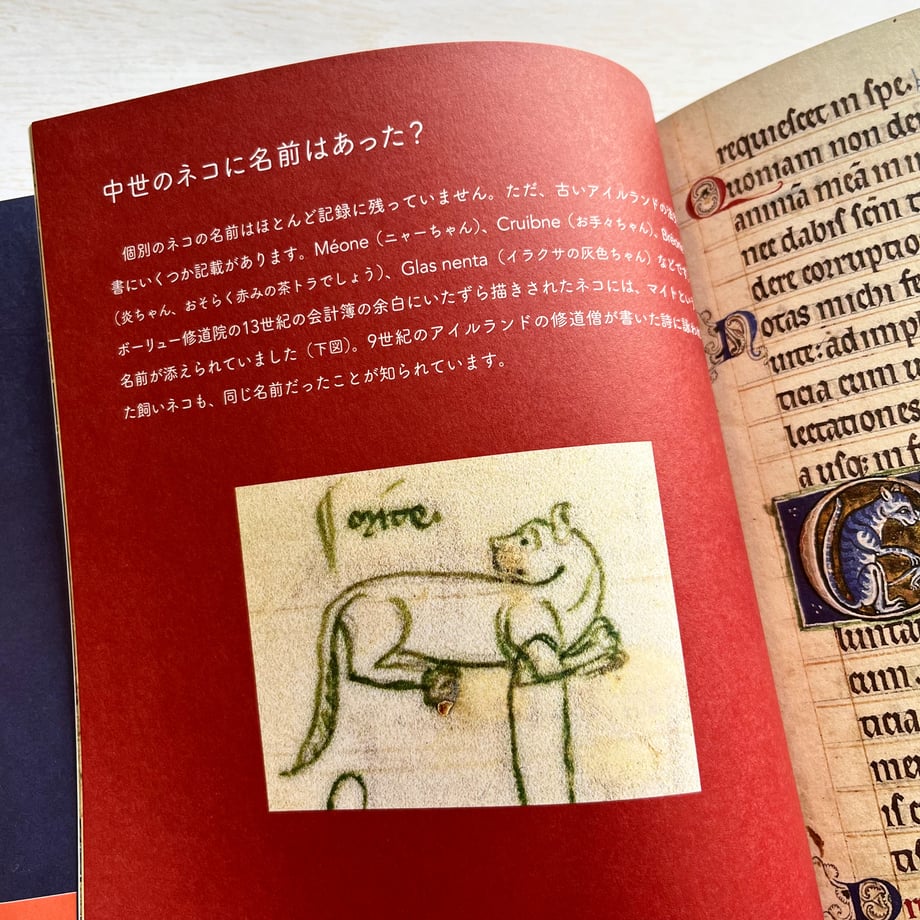 中世のネコに名前はあった?
個別のネコの名前はほとんど記録に残っていません。ただ、古いアイルランドの
書にいくつか記載があります。Méone(ニャーちゃん)、Cruibne(お手々ちゃん)、
(炎ちゃん、おそらく赤みの茶トラでしょう)、Glas nenta(イラクサの灰色ちゃん)などです。
ボーリュー修道院の13世紀の会計簿の余白にいたずら描きされたネコには、マイトとい
名前が添えられていました(下図)。9世紀のアイルランドの修道僧が書いた詩に詠わ
た飼いネコも、同じ名前だったことが知られています。
requiescet in spe.
Quoniam non de
animã meã in in
nec dabis scm̃ t
dere corruptio
Notas michi fe
unt: ad imp
ticia cum u
lectationes
a usq; in f
cum
ticia
me
is c